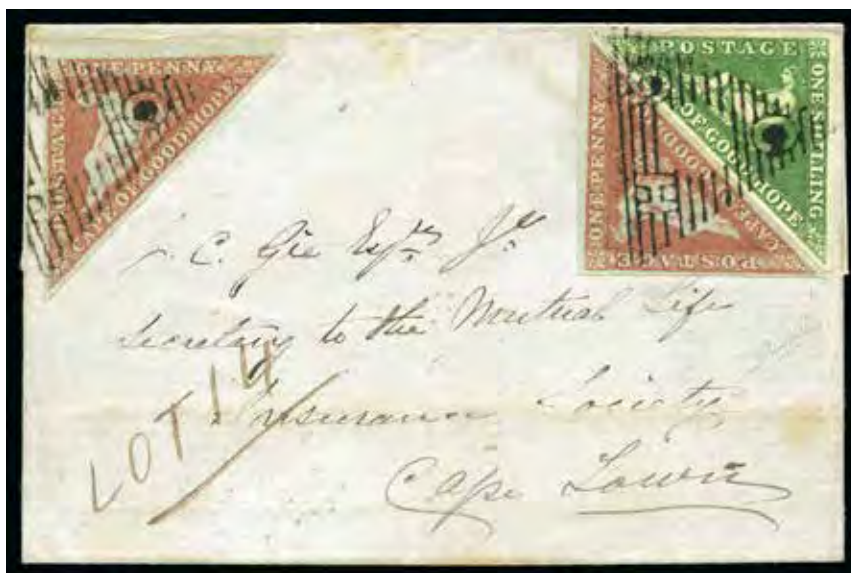 POSTAGE
ONE PENNY
CAPE OF GOOD HOPE
POSTAGE
ONE SHILLING
OF GOOD HOPE
ONE PENNY
POSTAGE
CAPE GOOD
C. Gie Esqre Jr
Secretary to the Mutual Life
Insurance Society
Cape Town
LOT 14